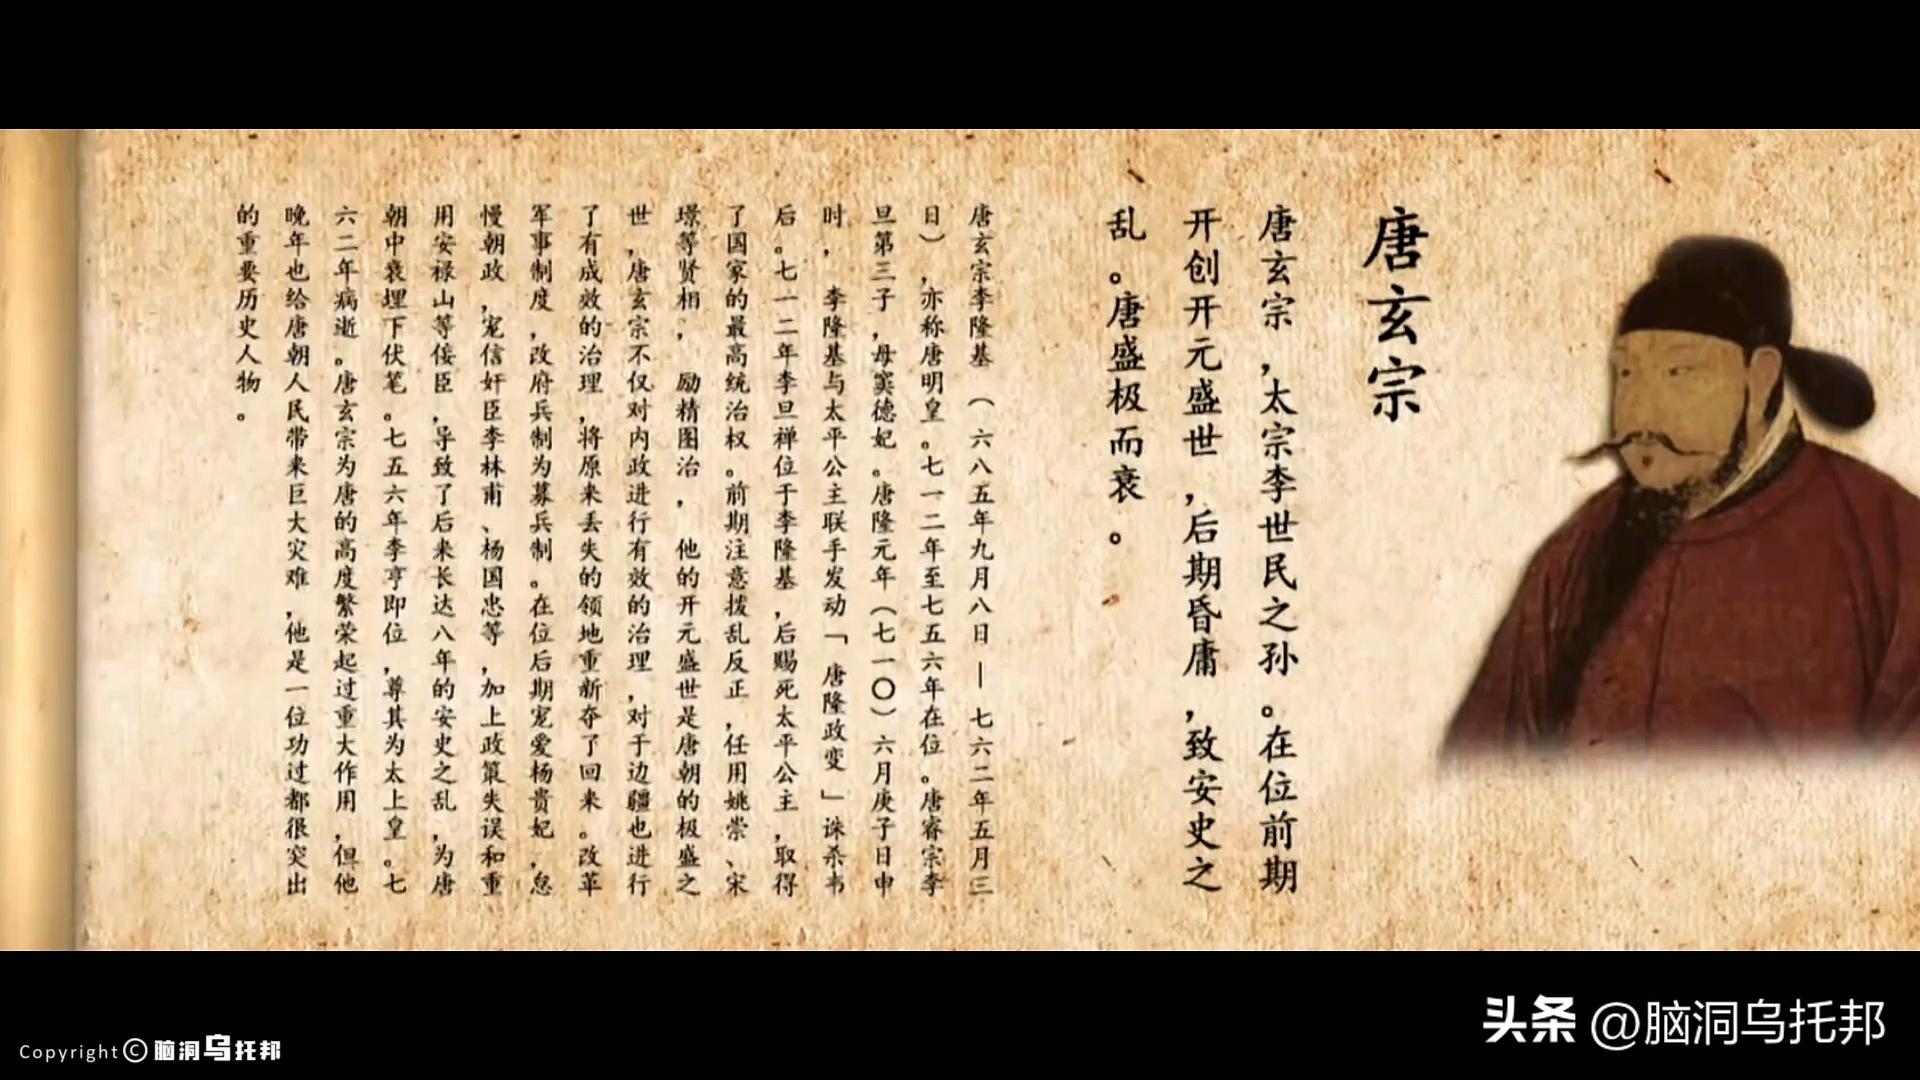 唐玄宗
唐玄宗，太宗李世民之孙。在位前期
开创开元盛世，后期昏庸，致安史之
乱。唐盛极而衰。
唐玄宗李隆基（六八五年九月八日—七六二年五月三
日），亦称唐明皇。七一二年至七五六年在位。唐睿宗李
旦第三子，母窦德妃。唐隆元年（七一〇）六月庚子日申
时，李隆基与太平公主联手发动「唐隆政变」诛杀韦
后。七一二年李旦禅位于李隆基，后赐死太平公主，取得
了国家的最高统治权。前期注意拨乱反正，任用姚崇、宋
璟等贤相，励精图治，他的开元盛世是唐朝的极盛之
世，唐玄宗不仅对内政进行有效的治理，对于边疆也进行
了有成效的治理，将原来丢失的领地重新夺了回来。改革
军事制度，改府兵制为募兵制。在位后期宠爱杨贵妃，怠
慢朝政，宠信奸臣李林甫、杨国忠等，加上政策失误和重
用安禄山等佞臣，导致了后来长达八年的安史之乱，为唐
朝中衰埋下伏笔。七五六年李亨即位，尊其为太上皇。七
六二年病逝。唐玄宗为唐的高度繁荣起过重大作用，但他
晚年也给唐朝人民带来巨大灾难，他是一位功过都很突出
的重要历史人物。
Copyright©脑洞乌托邦
头条 @脑洞乌托邦